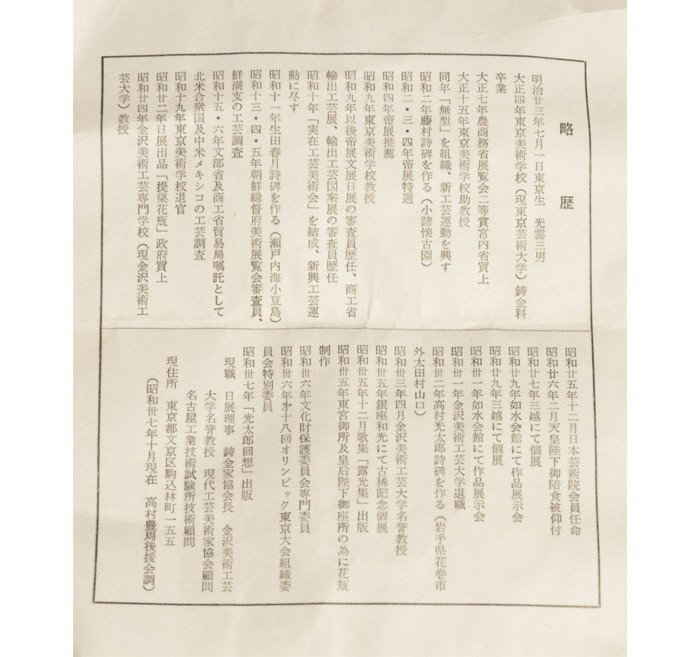 略歴
明治廿三年七月一日東京生　光雲三男
大正四年東京美術学校（現東京芸術大学）鋳金科
卒業
大正七年農商務省展覧会二等賞宮内省買上
大正十五年東京美術学校助教授
同年「無型」を組織、新工芸運動を興す
昭和二年藤村詩碑を作る（小諸懐古園）
昭和二・三・四年帝展特選
昭和四年帝展推薦
昭和九年東京美術学校教授
昭和九年以後帝展文展日展の審査員歴任、商工省
輸出工芸展、輸出工芸図案展の審査員歴任
昭和十年「実在工芸美術会」を結成、新興工芸運
動に尽す
昭和十一年生田春月詩碑を作る（瀬戸内海小豆島）
昭和十三・四・五年朝鮮総督府美術展覧会審査員、
鮮満支の工芸調査
昭和十五・六年文部省及商工省貿易局嘱託として
北米合衆国及中米メキシコの工芸調査
昭和十九年東京美術学校退官
昭和廿二年日展出品「提梁花瓶」政府買上
昭和廿四年金沢美術工芸専門学校（現金沢美術工
芸大学）教授
昭和廿五年十二月日本芸術院会員任命
昭和廿六年二月天皇陛下御陪食被仰付
昭和廿七年三越にて個展
昭和廿九年如水会館にて作品展示会
昭和廿九年三越にて個展
昭和卅一年如水会館にて作品展示会
昭和卅一年金沢美術工芸大学退職
昭和卅二年高村光太郎詩碑を作る（岩手県花巻市
外太田村山口）
昭和卅三年四月金沢美術工芸大学名誉教授
昭和卅五年銀座和光にて古稀記念個展
昭和卅五年十二月歌集「露光集」出版
昭和卅五年東宮御所及皇后陛下御座所の為に花瓶
制作
昭和卅六年文化財保護委員会専門委員
昭和卅六年才十八回オリンピック東京大会組織委
員会特別委員
昭和卅七年「光太郎回想」出版
現職　日展理事　鋳金家協会長　金沢美術工芸
大学名誉教授　現代工芸美術家協会顧問
名古屋工業技術試験所技術顧問
現住所　東京都文京区駒込林町一五五
（昭和卅七年十月現在　高村豊周後援会調）